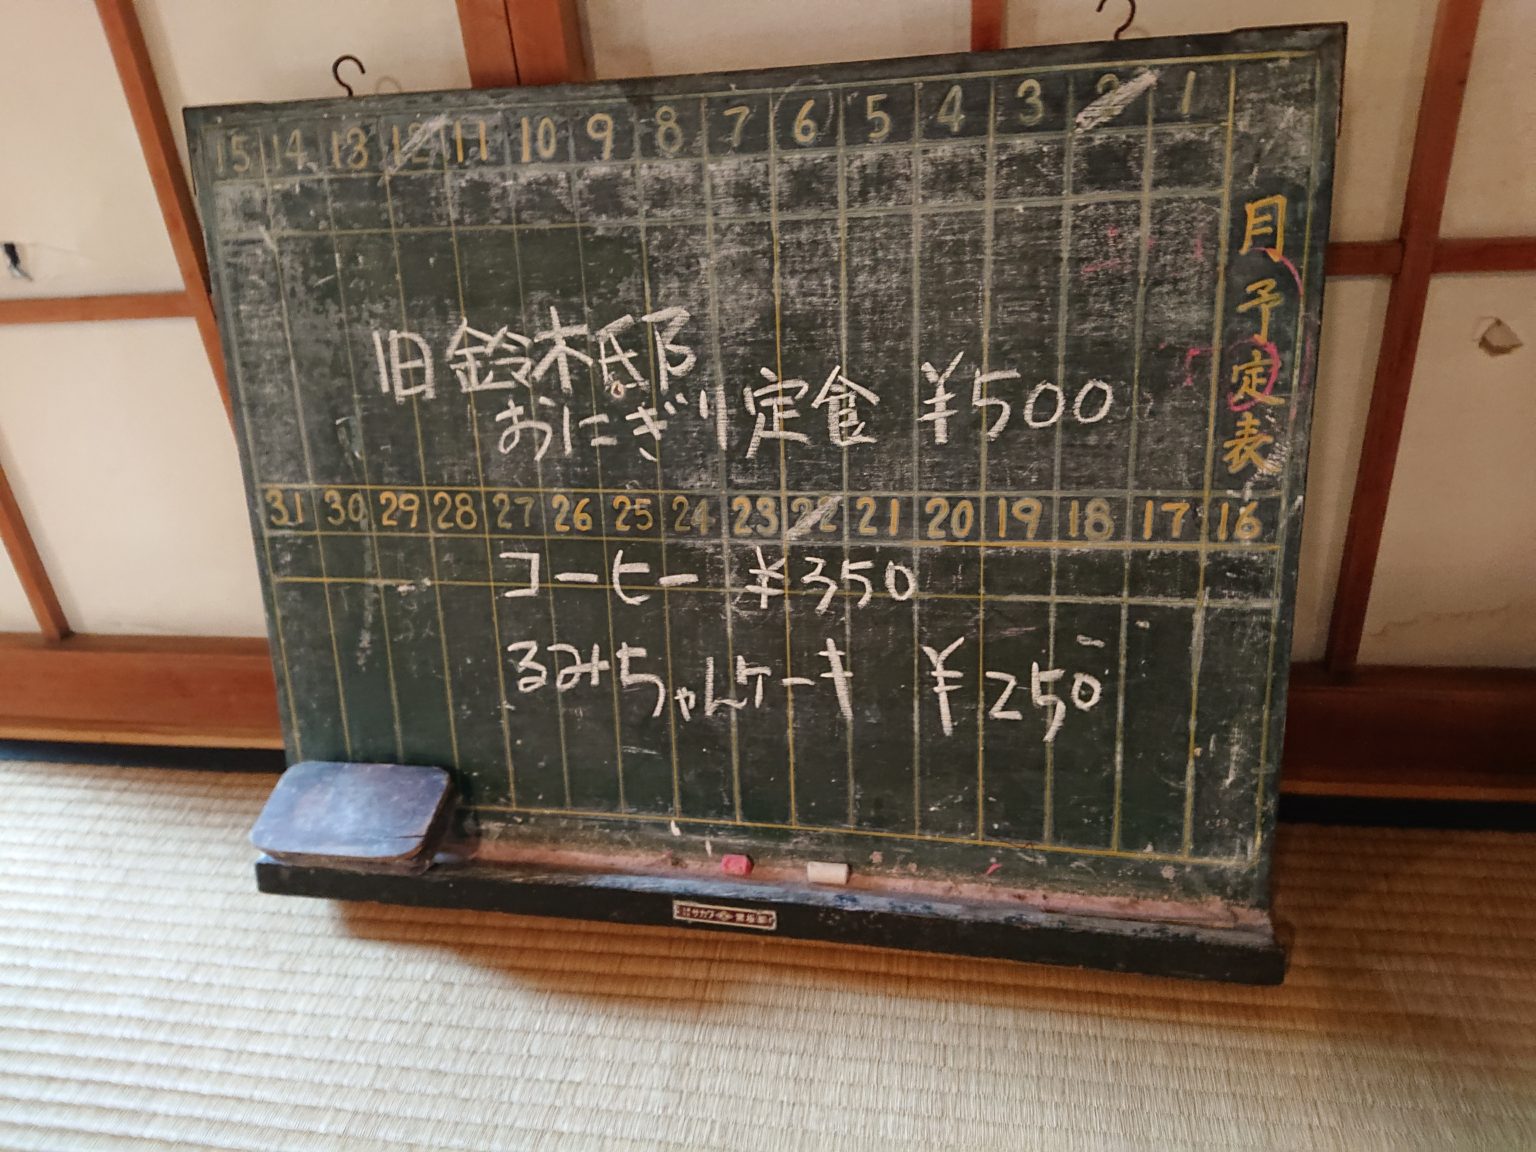 月予定表
15 14 13 12 11 10 9 8 7 6 5 4 3 2 1
旧鈴木邸
おにぎり定食 ¥500
31 30 29 28 27 26 25 24 23 22 21 20 19 18 17 16
コーヒー ¥350
るみちゃんケーキ ¥250
サカワ 黒板